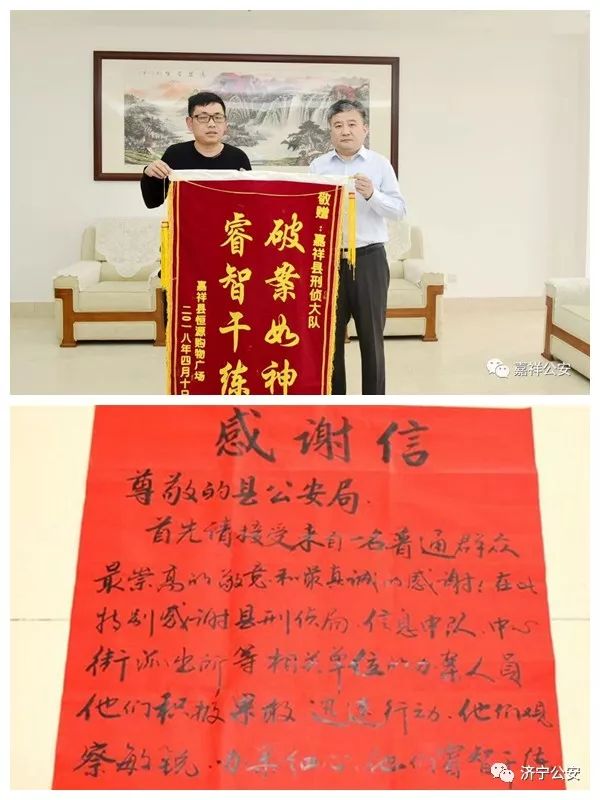 敬赠：嘉祥县刑侦大队
破案如神
睿智干练
嘉祥县恒源购物广场
二〇一八年四月十日
嘉祥公安
感谢信
尊敬的县公安局
首先请接受来自一名普通群众
最崇高的敬意和最真诚的感谢；在此
特别感谢县刑侦局、信息中队、中心
街派出所等相关单位的办案人员
他们积极果敢、迅速行动、他们观
察敏锐、办案细心、他们睿智干练
济宁公安